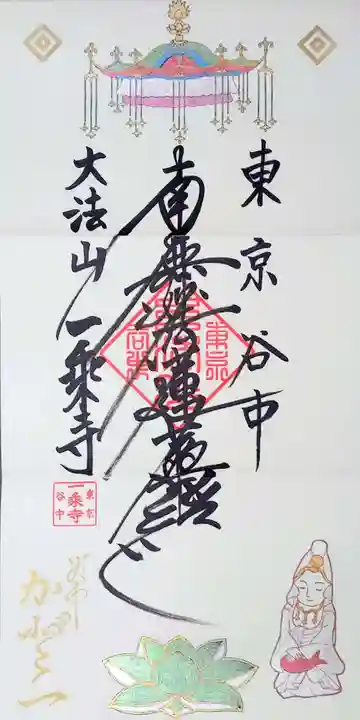 東京谷中
南無妙法蓮華経
大法山一乗寺
東京
一乗寺
谷中